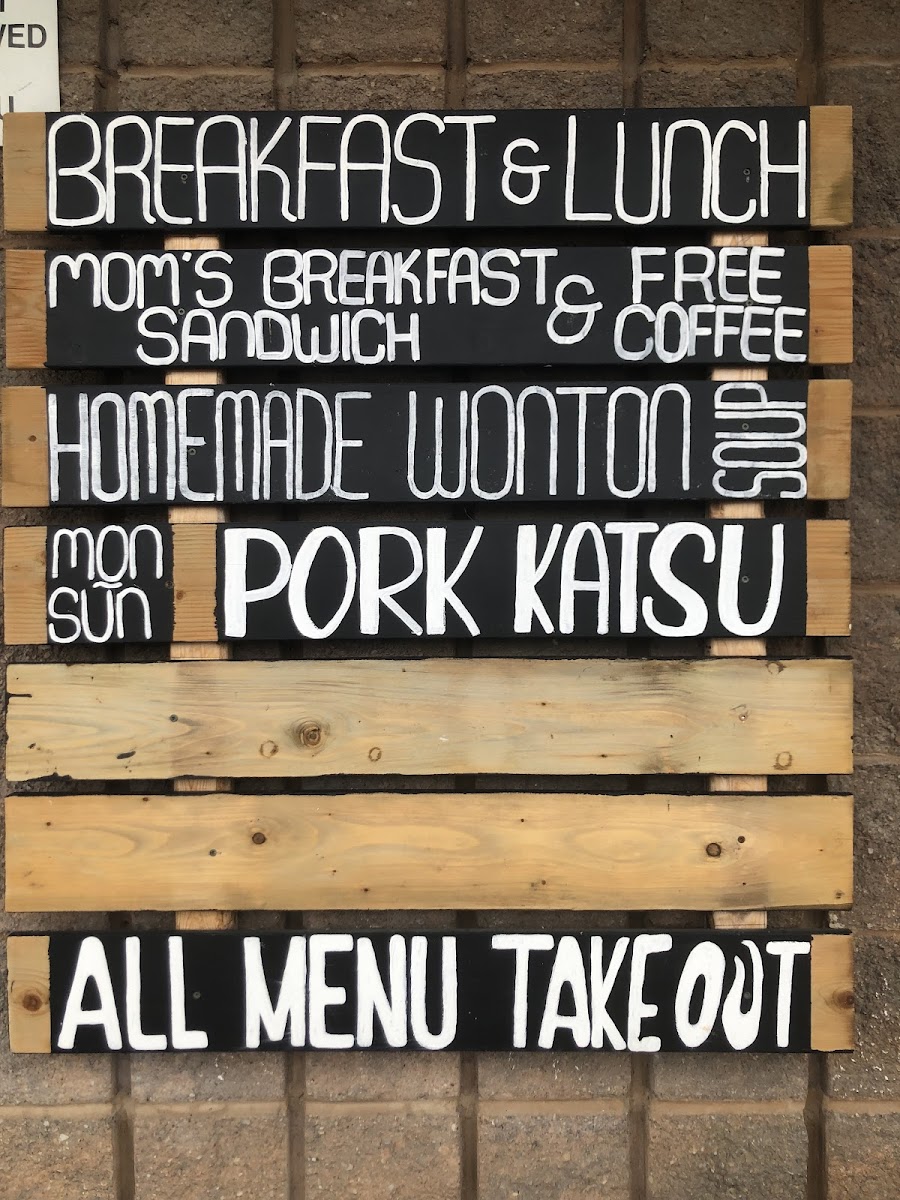 VED
BREAKFAST & LUNCH
MOM'S BREAKFAST & FREE
SANDWICH COFFEE
HOMEMADE WONTON SOUP
MON
~
SUN
PORK KATSU
ALL MENU TAKE OUT